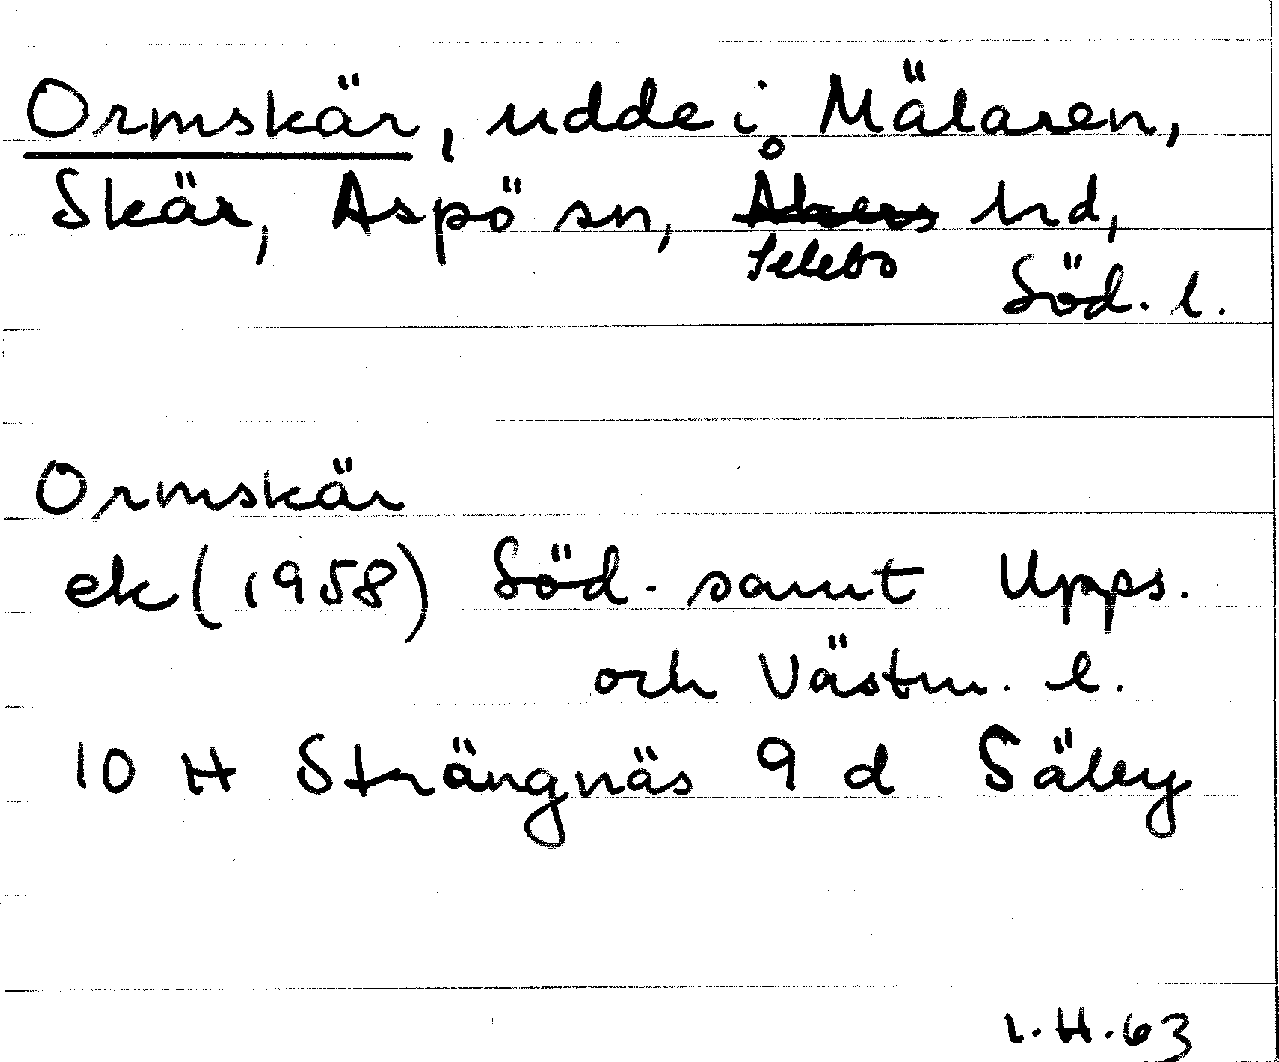 Ormskär, udde i Mälaren,
Skär, Aspö sn, Åkers hd,
Selebo
Söd. l.
Ormskär
ek (1958) Söd. samt Upps.
och Västm. l.
10 H Strängnäs 9 d Säby
I.H.63